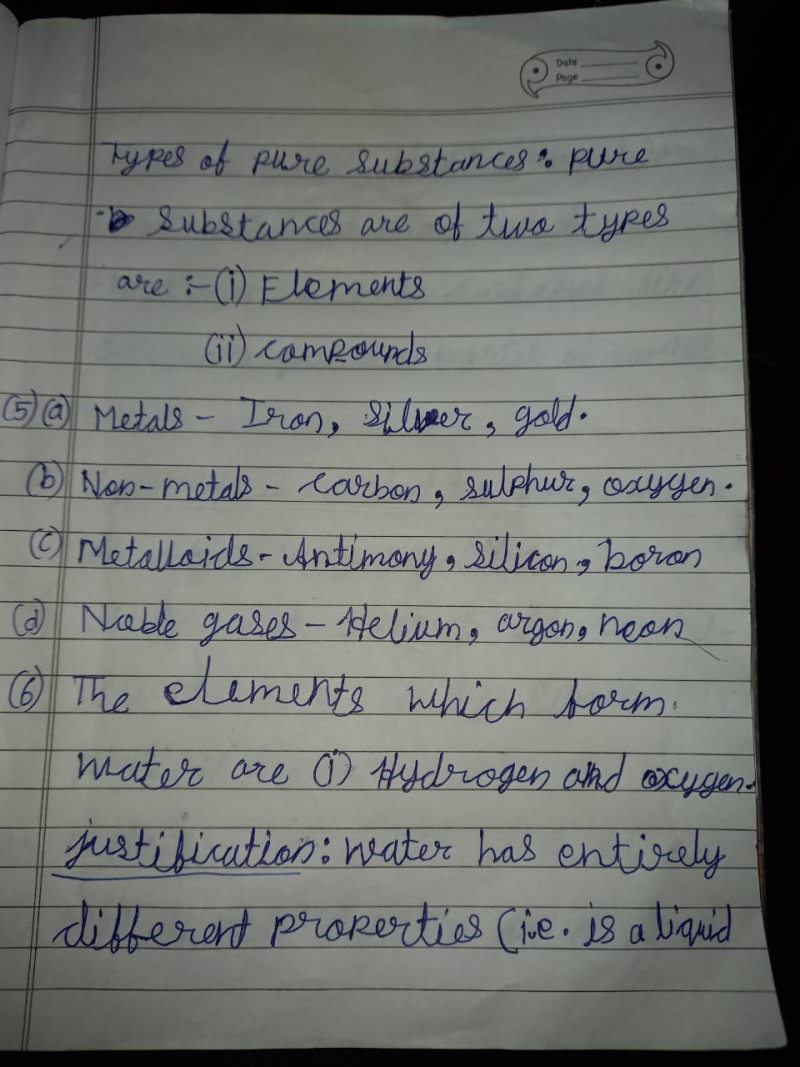 Date
Page
Types of pure substances: pure
substances are of two types
are :- (i) Elements
(ii) compounds
(5) (a) Metals - Iron, silver, gold.
(b) Non-metals - carbon, sulphur, oxygen.
(c) Metalloids - Antimony, silicon, boron
(d) Noble gases - Helium, argon, neon
(6) The elements which form
water are (i) Hydrogen and oxygen.
justification: water has entirely
different properties (i.e. is a liquid